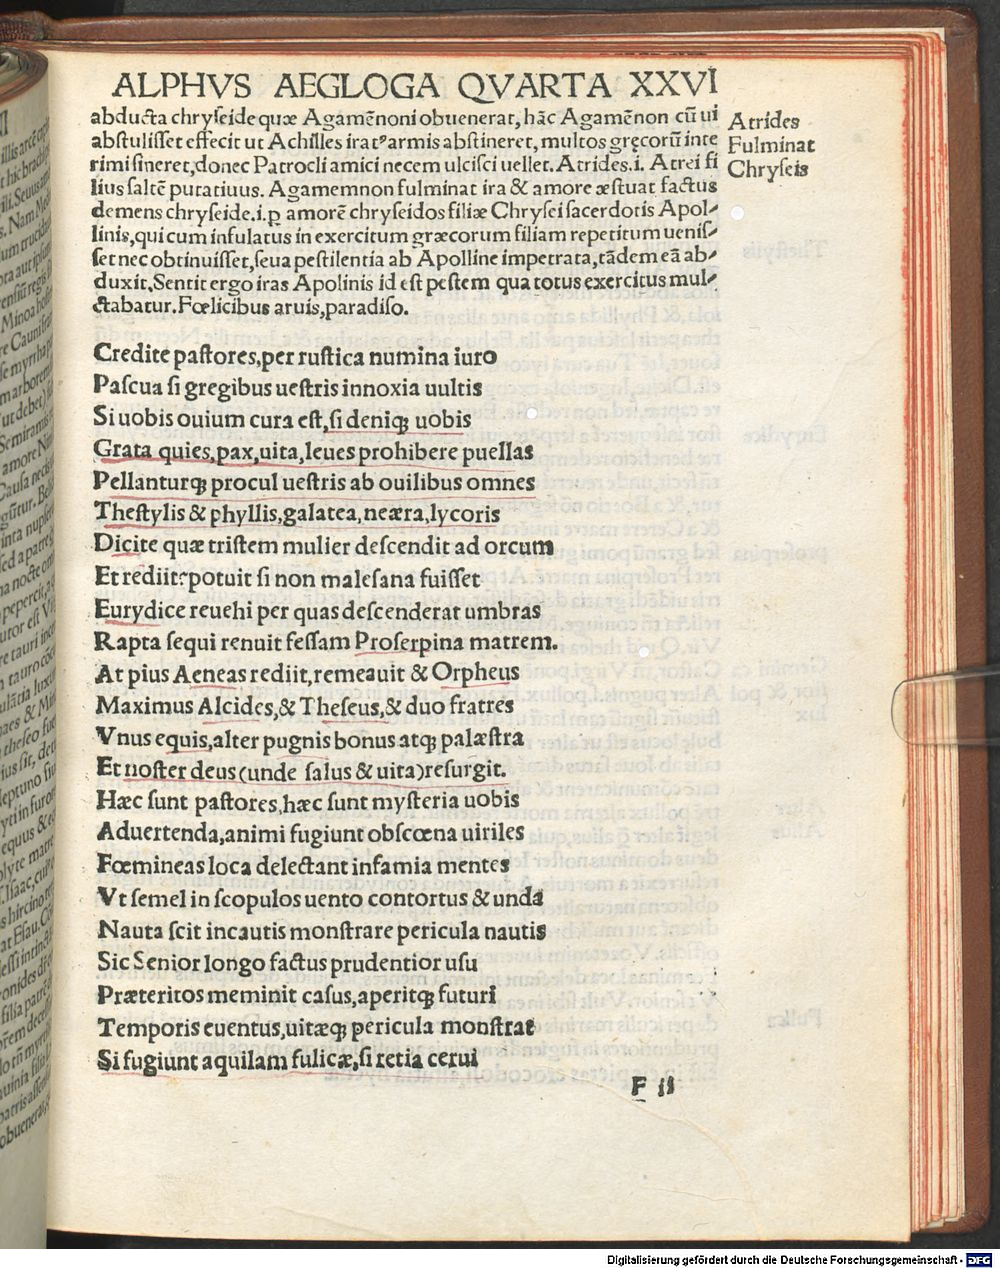 ALPHVS AEGLOGA QVARTA XXVI
abducta chryſeide quæ Agamẽnoni obuenerat, hãc Agamẽnon cũ ui
abſtuliſſet effecit ut Achilles irat᷒ armis abſtineret, multos gręcorũ inte
rimi ſineret, donec Patrocli amici necem ulciſci uellet. Atrides.i. Atrei fi
lius ſaltẽ putatiuus. Agamemnon fulminat ira & amore æſtuat factus
demens chryſeide.i.ꝑ amorẽ chryſeidos filiæ Chryſei ſacerdotis Apol⸗
linis, qui cum infulatus in exercitum græcorum filiam repetitum ueniſ⸗
ſet nec obtinuiſſet, ſeua peſtilentia ab Apolline impetrata, tãdem eã ab⸗
duxit. Sentit ergo iras Apolinis id eſt peſtem qua totus exercitus mul⸗
ctabatur. Fœlicibus aruis, paradiſo.
Atrides
Fulminat
Chryſeis
Credite paſtores, per ruſtica numina iuro
Paſcua ſi gregibus ueſtris innoxia uultis
Si uobis ouium cura eſt, ſi deniqꝫ uobis
Grata quies, pax, uita, leues prohibere puellas
Pellanturqꝫ procul ueſtris ab ouilibus omnes
Theſtylis & phyllis, galatea, neæra, lycoris
Dicite quæ triſtem mulier deſcendit ad orcum
Et rediit? potuit ſi non maleſana fuiſſet
Eurydice reuehi per quas deſcenderat umbras
Rapta ſequi renuit feſſam Proſerpina matrem.
At pius Aeneas rediit, remeauit & Orpheus
Maximus Alcides, & Theſeus, & duo fratres
Vnus equis, alter pugnis bonus atqꝫ palæſtra
Et noſter deus (unde ſalus & uita) reſurgit.
Hæc ſunt paſtores, hæc ſunt myſteria uobis
Aduertenda, animi fugiunt obſcœna uiriles
Fœmineas loca delectant infamia mentes
Vt ſemel in ſcopulos uento contortus & unda
Nauta ſcit incautis monſtrare pericula nautis
Sic Senior longo factus prudentior uſu
Præteritos meminit caſus, aperitqꝫ futuri
Temporis euentus, uitæqꝫ pericula monſtrat
Si fugiunt aquilam fulicæ, ſi retia cerui
F ii
Digitalisierung gefördert durch die Deutsche Forschungsgemeinschaft - DFG